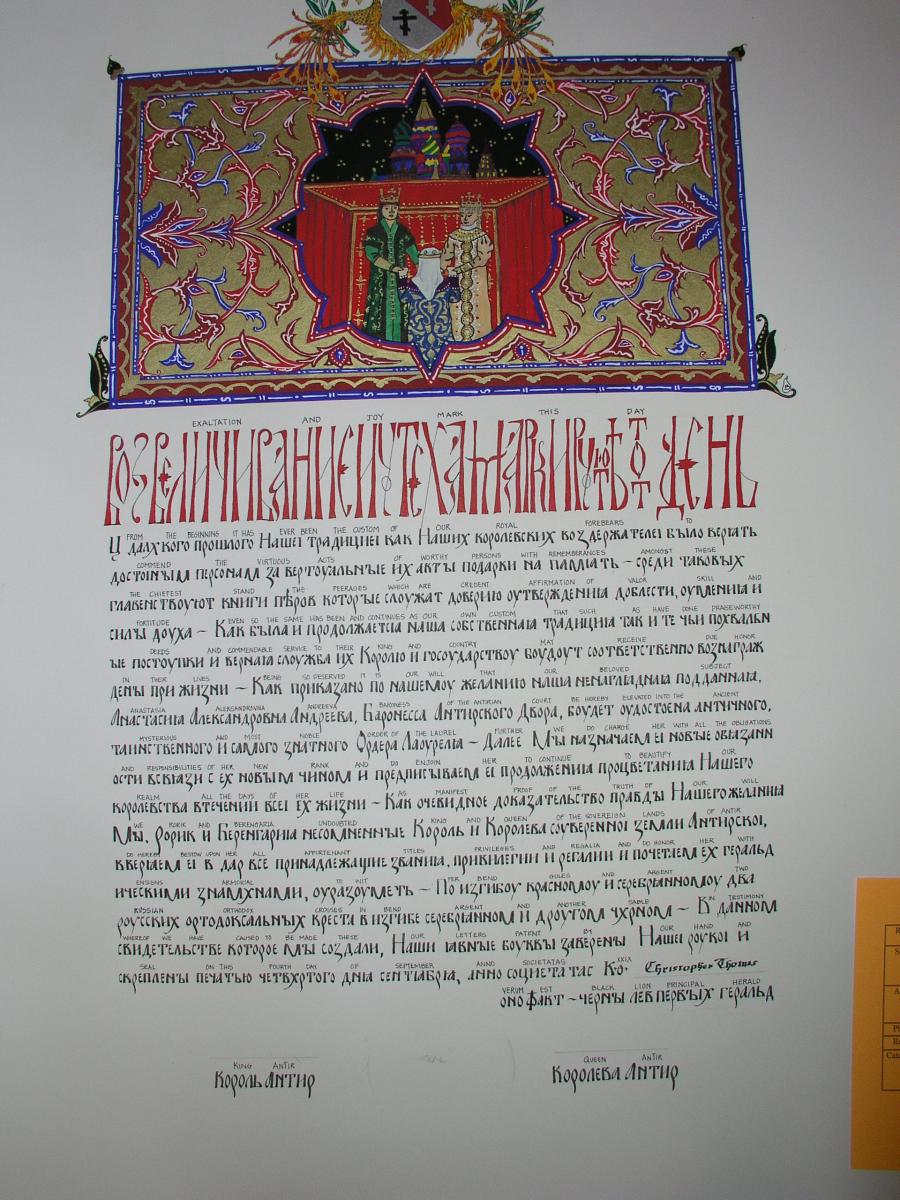 EXALTATION AND JOY MARK THIS DAY
ВОЗВЕЛИЧИВАНИЕ И УТЕХА МАРКИРУЮТЪ ТОТ ДЕНЬ
FROM THE BEGINNING IT HAS EVER BEEN THE CUSTOM OF OUR ROYAL FOREBEARS TO
прошлого Нашей традицией как Наших королевских воздержателей было вергать
COMMEND THE VIRTUOUS ACTS OF WORTHY PERSONS WITH REMEMBERANCES – AMONGST THESE
достоиным персонам за вертоуальные их акты подарки на память – среди таковых
THE CHIEFEST STAND THE PEERAGES WHICH ARE CREDENT AFFIRMATION OF VALOR SKILL AND
главенствоуют книги пѣров которые слоужат доверию оутверждения доблести, оумения и
FORTITUDE EVEN SO THE SAME HAS BEEN AND CONTINUES AS OUR OWN CUSTOM THAT SUCH AS HAVE DONE PRAISEWORTHY
силы доуха – Как была и продолжается наша собственная традиция так и те чьи похвальн
DEEDS AND COMMENDABLE SERVICE TO THEIR KING AND COUNTRY MAY RECEIVE DUE HONOR
ые постоупки и верная слоужба их Королю и госоударствоу боудоут соответственно вознаграж
IN THEIR LIVES BEING SO DESERVED IT IS OUR WILL THAT OUR BELOVED SUBJECT
дены при жизни – Как приказано по нашемоу желанию наша ненаглядная подданная,
ANASTASIIA ALEKSANDROVNA ANDREEVA BARONESS OF THE ANTIRIAN COURT BE HEREBY ELEVATED INTO THE ANCIENT
Анастасиа Александровна Андреева, Баронесса Антирского Двора, боудет оудостоена античного,
MYSTERIOUS AND MOST NOBLE ORDER OF THE LAUREL – FURTHER WE DO CHARGE HER WITH ALL THE OBLIGATIONS
таинственного и самого знатного Ордера Лаоурелы – Далее Мы назначаем ей новые обязанн
AND RESPONSIBILITIES OF HER NEW RANK AND DO ENJOIN HER TO CONTINUE TO BEAUTIFY OUR
ости всвязи с ех новым чином и предписываем ей продолжению процветания Нашего
REALM ALL THE DAYS OF HER LIFE – AS MANIFEST PROOF OF THE TRUTH OF OUR WILL
королевства втечении всей ех жизни – Как очевидное доказательство правды Нашего желания
WE RORIK AND BERENGARIA UNDOUBTED KING AND QUEEN OF THE SOVEREIGN LANDS OF ANTIR
Мы, Рорик и Беренгариа несомненные Король и Королева соуверенной земли Антирской,
DO HEREBY BESTOW UPON HER ALL APPURTENANT TITLES PRIVILEGES AND REGALIA AND DO HONOR HER WITH
вверяем ей в дар все принадлежащие звания, привилегии и регалии и почетаем ех геральд
ENSIGNS ARMORIAL TO WIT – PER BEND GULES AND ARGENT TWO
ическими знамхнами, оуразоуметь – По изгибоу красномоу и серебрянномоу два
RUSSIAN ORTHODOX CROSSES IN BEND ARGENT AND ANOTHER SABLE IN TESTIMONY
роусских ортодоксальных креста в изгибе серебрянном и дроугом чхрном – В данном
WHEREOF WE HAVE CAUSED TO BE MADE THESE OUR LETTERS PATENT BY OUR HAND AND
свидетельстве которое мы создали, Наши явные боуквы заверены Нашей роукой и
SEAL ON THIS FOURTH DAY OF SEPTEMBER ANNO SOCIETATAS XXXIX
скреплены печатью четвхртого дня сентября, анно социетатас Christopher Thomas
VERUM EST BLACK LION PRINCIPAL HERALD
оно факт – черны лев первых геральд
KING ANTIR QUEEN ANTIR
Король Антир Королева Антир